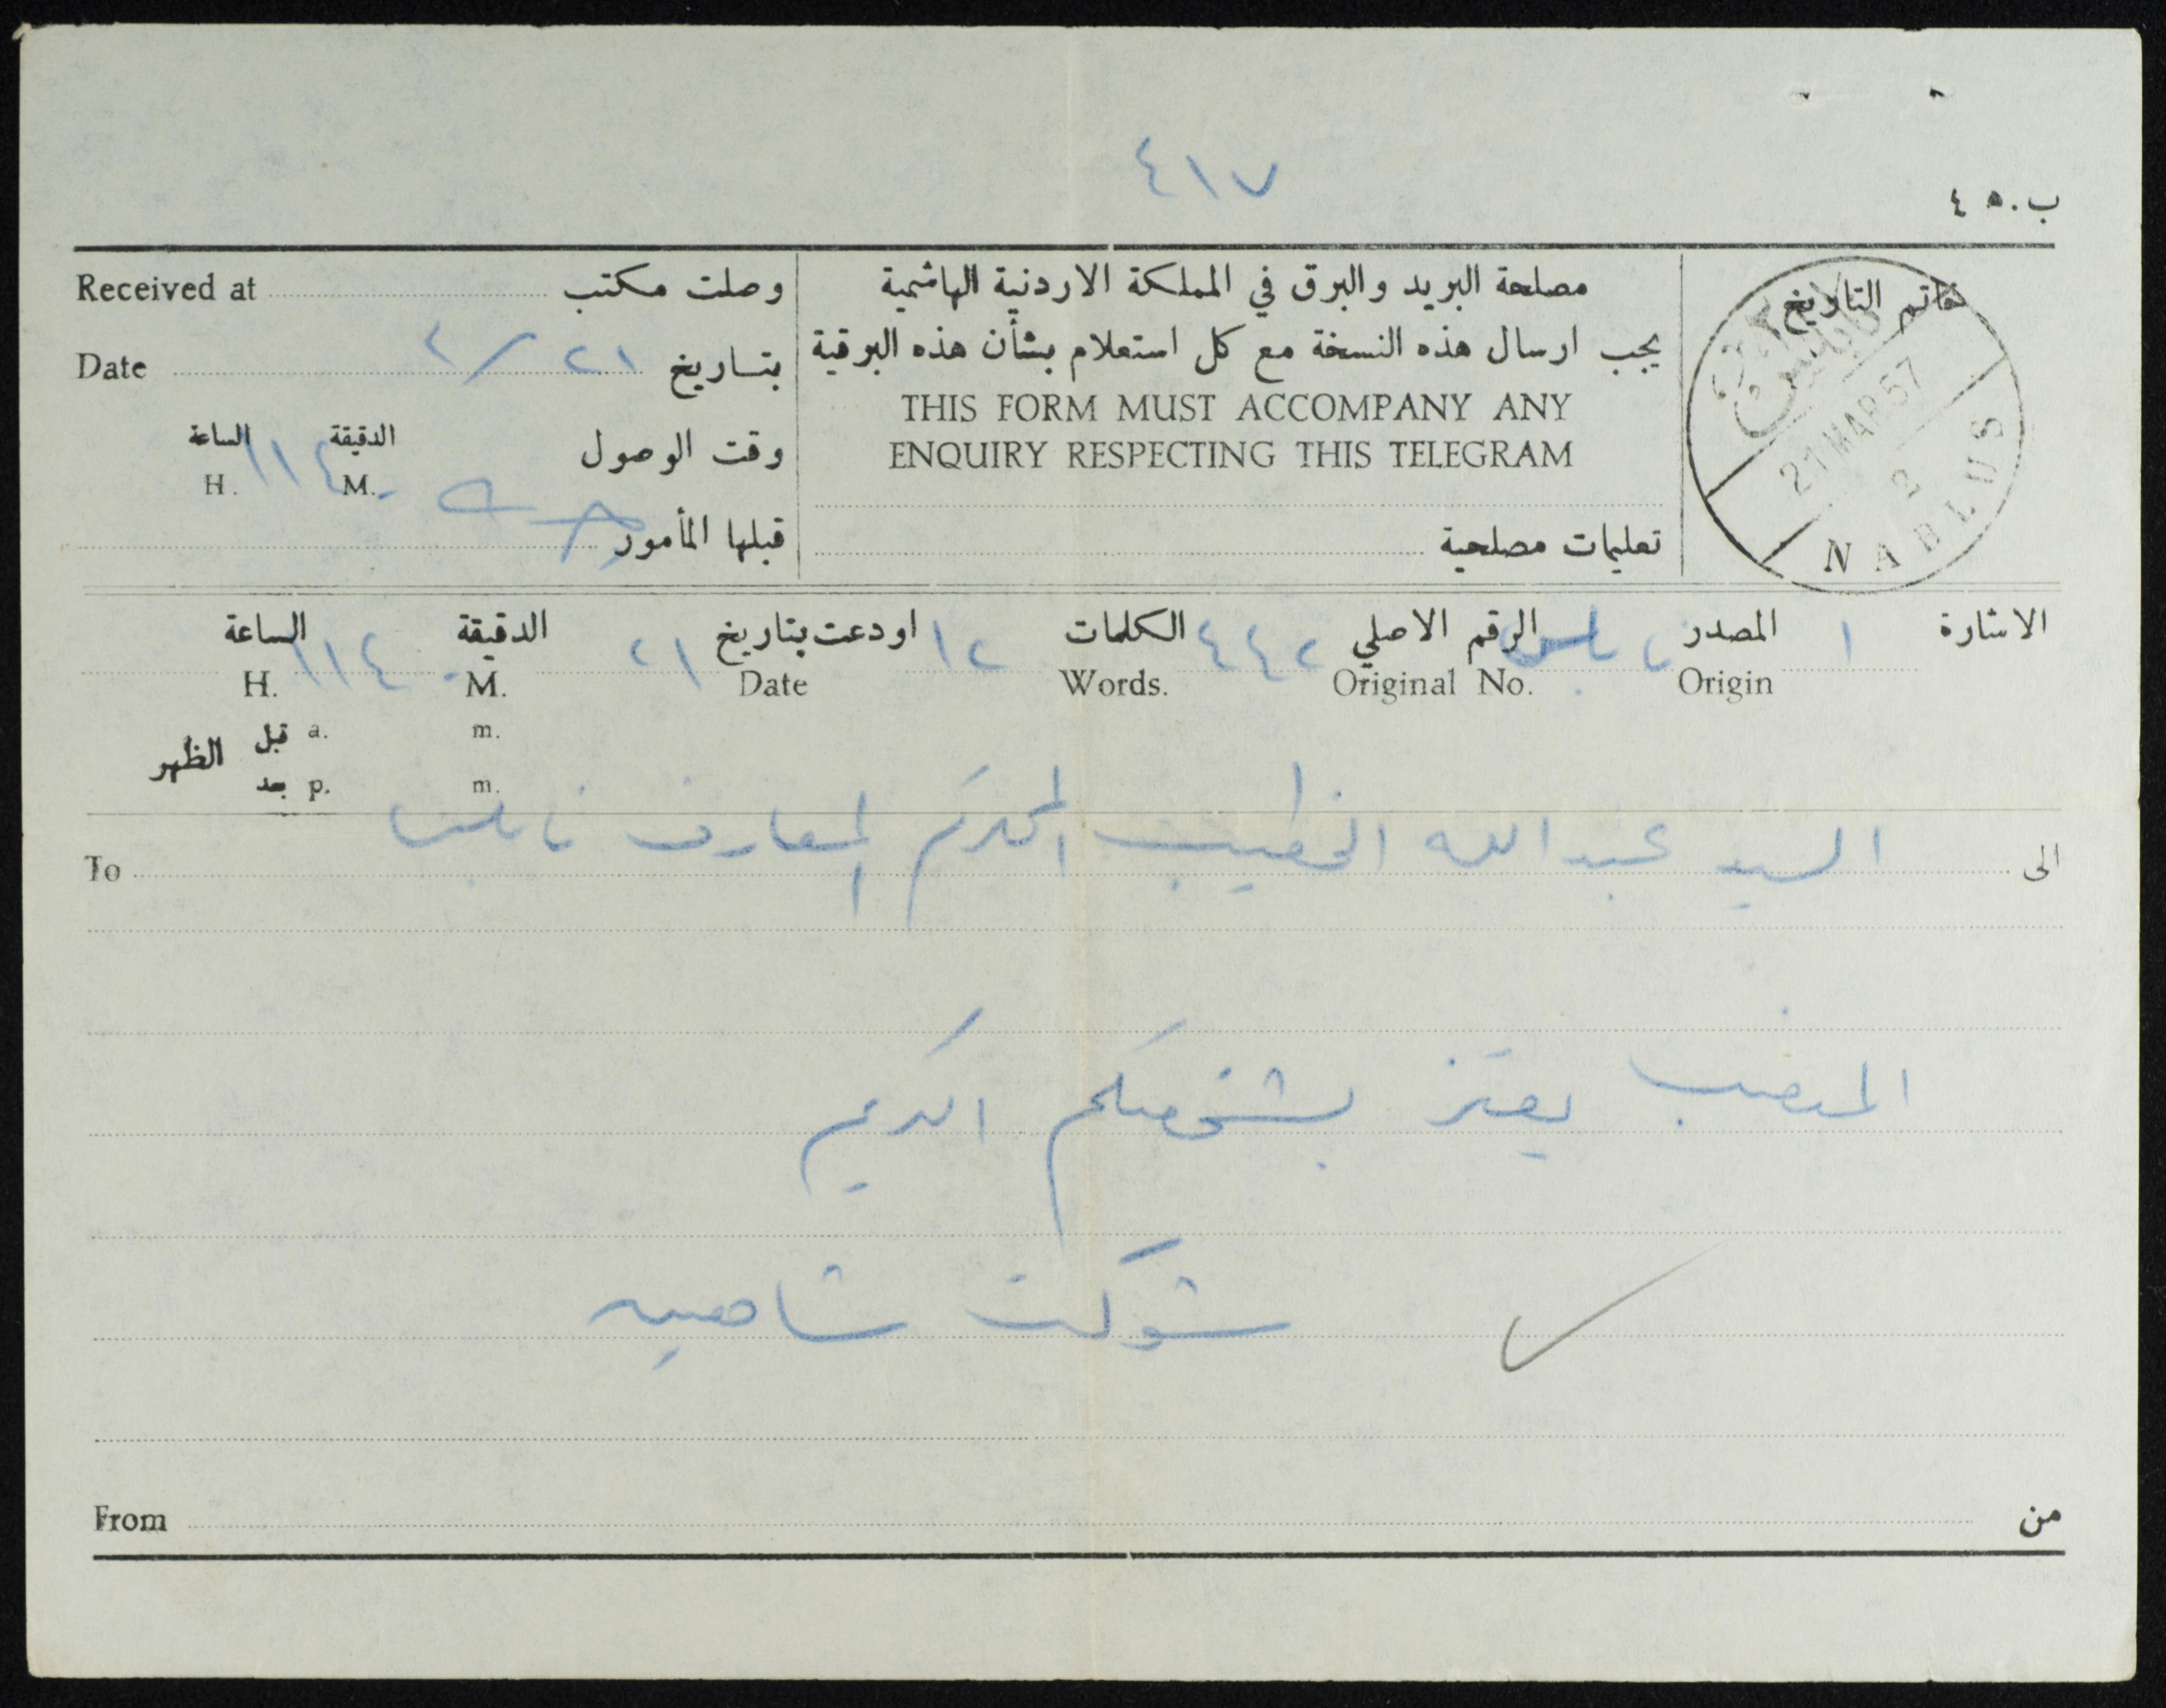 ٤١٧
ب.٤٥
Received at وصلت مكتب
Date ٢١ / ٣ بتاريخ
الساعة الدقيقة وقت الوصول
H. ١١ M. ٤٠
قبلها المأمور
مصلحة البريد والبرق في المملكة الاردنية الهاشمية
يجب ارسال هذه النسخة مع كل استعلام بشأن هذه البرقية
THIS FORM MUST ACCOMPANY ANY
ENQUIRY RESPECTING THIS TELEGRAM
تعليمات مصلحية
خاتم التاريخ
نابلس
21 MAR 57
2
NABLUS
الاشارة ١ المصدر نابلس الرقم الاصلي ٤٤٢ الكلمات ١٢ اودعت بتاريخ ٢١ الدقيقة ٤٠ الساعة ١١
Origin Original No. Words. Date M. H.
قبل a. m.
الظهر
بعد p. m.
الى السيد عبدالله الخطيب المحترم المعارف نابلس To
المنصب يعتز بشخصكم الكريم
شوكت شاهين
From من